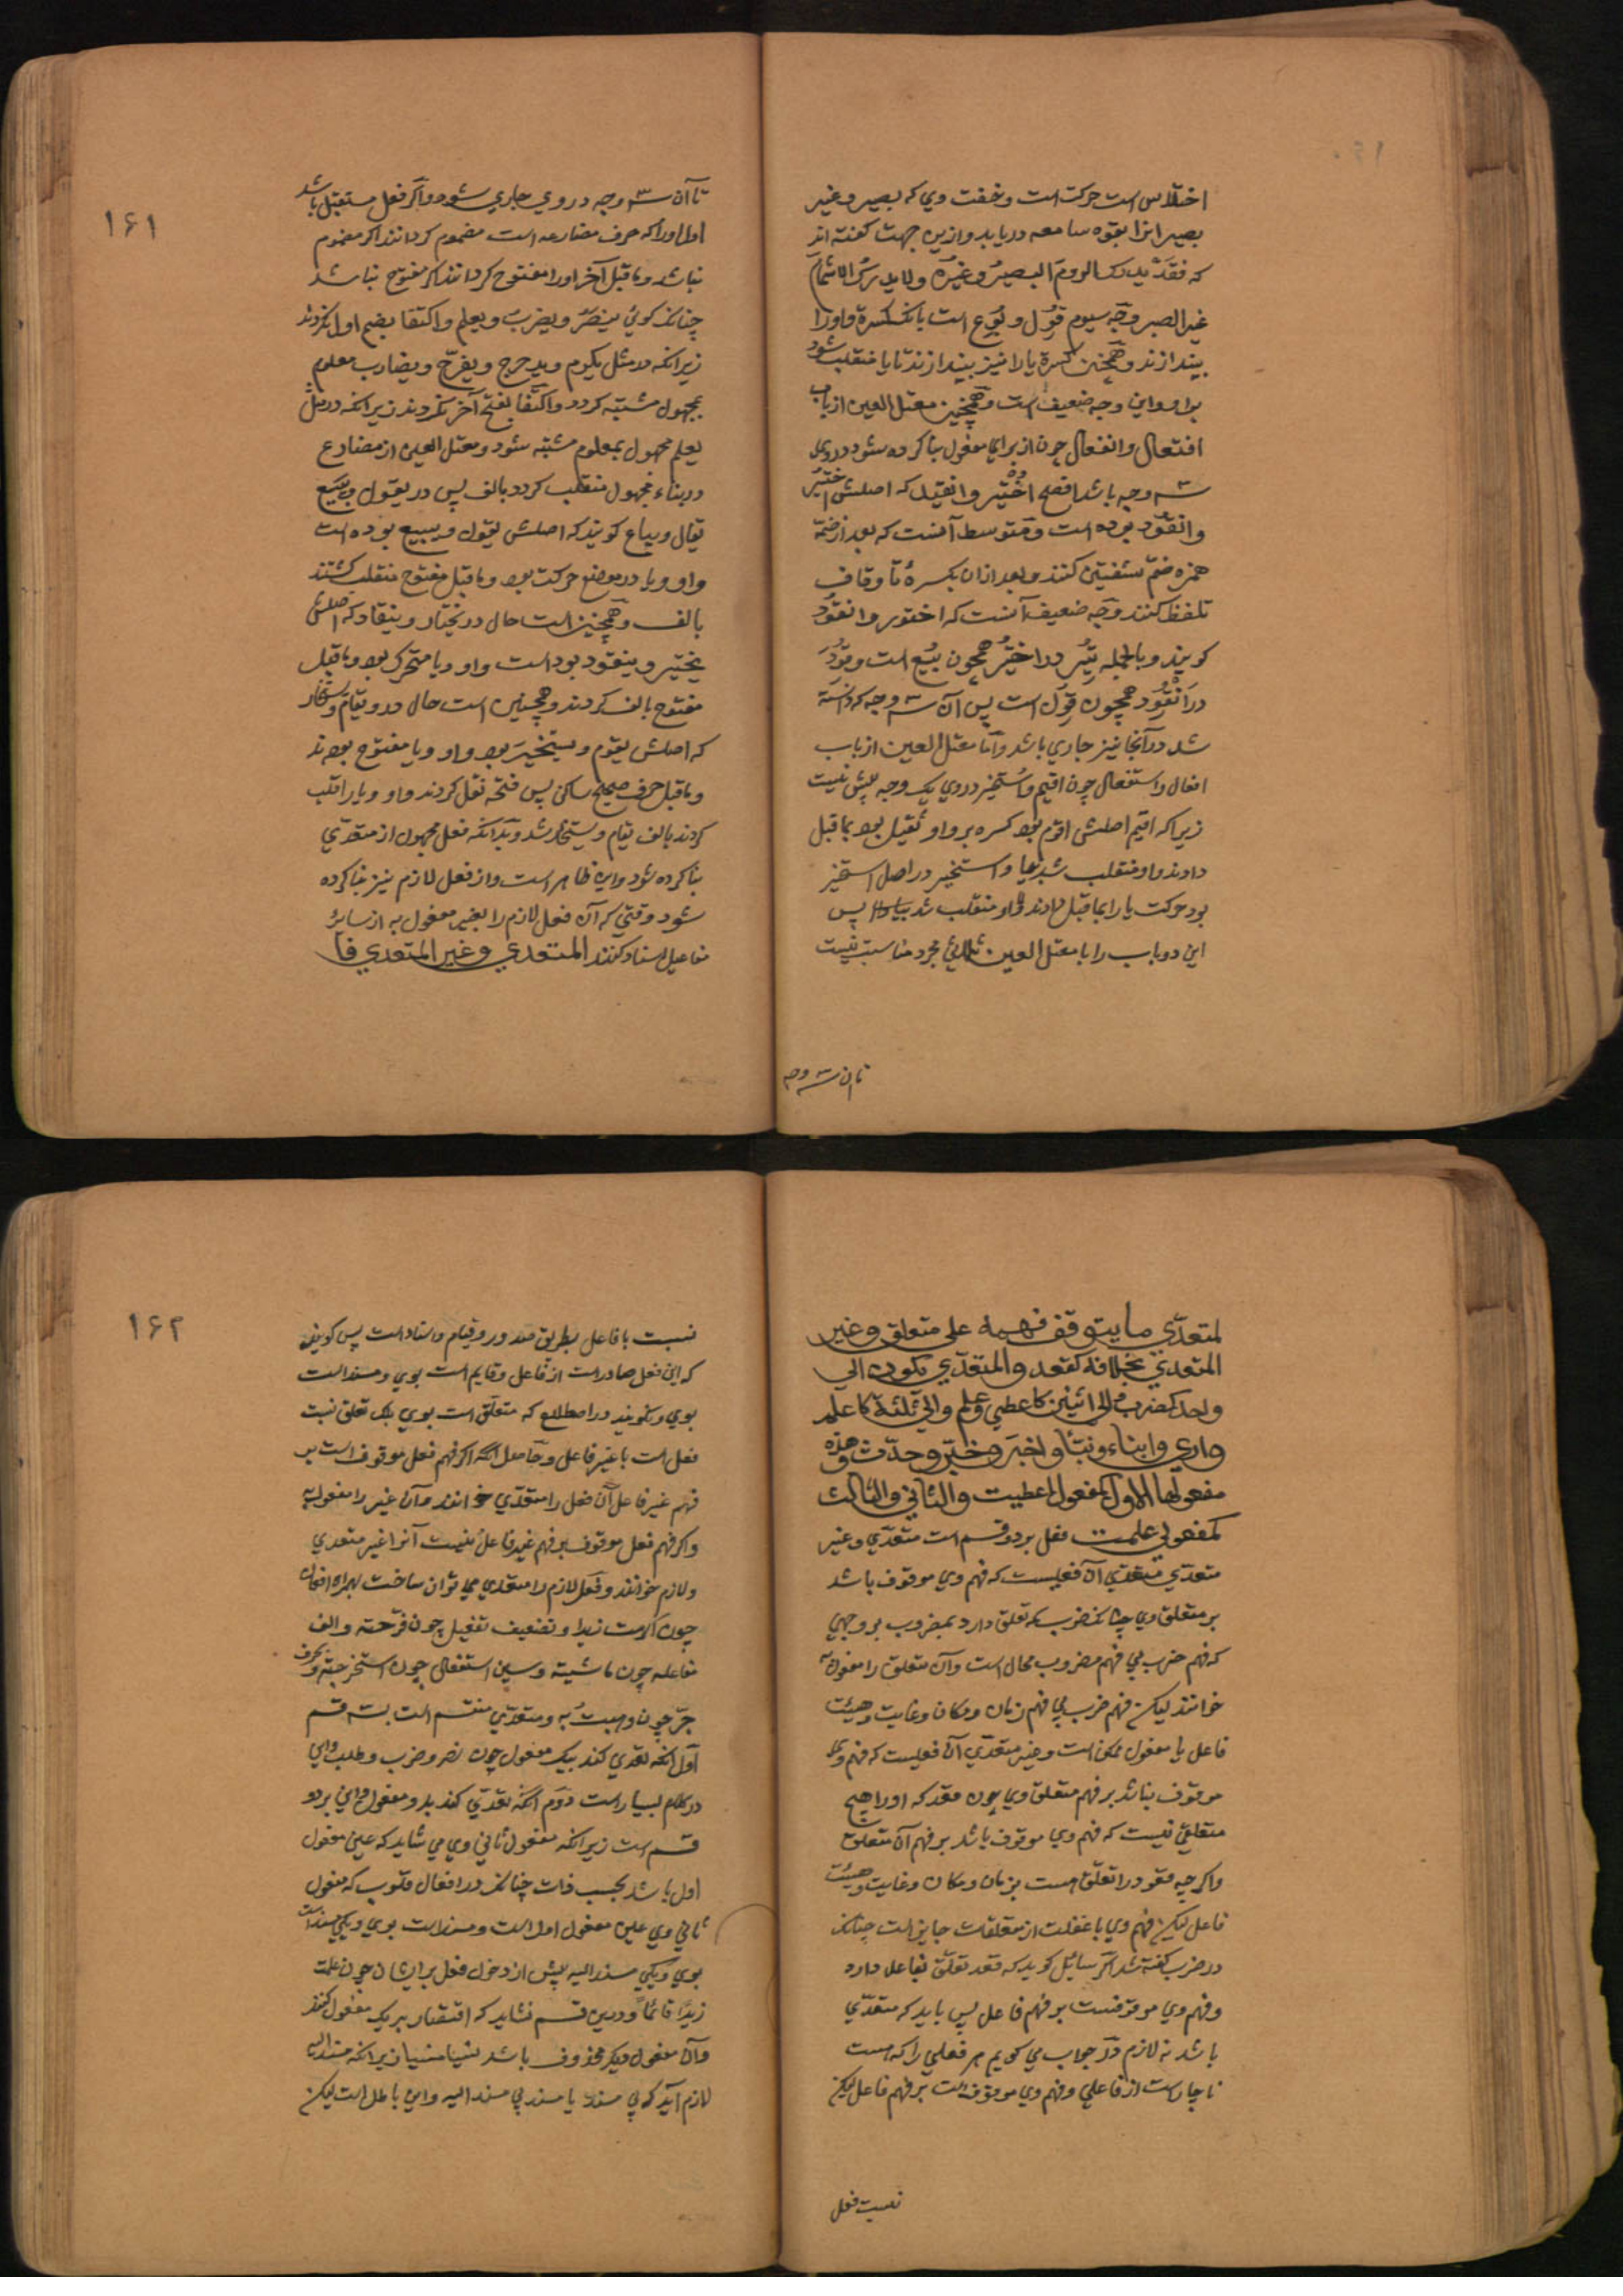 اختلاس است حرکت است وخفت وي که بصیر وغیر
بصیر انرا بقوه سامعه دریابد وازین جهت کفته اند
که فقد یدرک الروم البصیر وغیره ولا یدرک الاشمام
غیر البصیر وجه سیوم قول وبوع است بانکه کسره واو را
بیندازند وهمچنین کسره یا را نیز بیندازند تا یا منقلب شود
بواو واین وجه ضعیف است وهمچنین معتل العین از باب
افتعال وانفعال چون از برای مفعول بنا کرده شود در وي
سه وجه باشد افصح اختیر وانقید که اصلش اختیر
وانقود بوده است ومتوسط آنست که بعد از ضمّ
همزه ضمّ شفتین کنند وبعد ازان بکسرۀ تا وقاف
تلفظ کنند وجه ضعیف آنست که اختور وانقود
کویند وبالجمله تیر در اختیر همچون بیع است وقود
در انقود همچون قول است پس آن سه وجه که دانسته
شد در آنجا نیز جاري باشد واما معتل العین از باب
افعال واستفعال چون اقیم واستخیر در وي یک وجه بیش نیست
زیرا که اقیم اصلش اقوم بود کسره بر واو ثقیل بود بما قبل
دادند واو منقلب شد بیا واستخیر در اصل استخیر
بود حرکت یا را بما قبل دادند واو منقلب شد بیا پس
این دو باب را با معتل العین ثلاثي مجرد مناسبت نیست
تا ان سه وجه
۱۶۱
تا آن سه وجه در وي جاري شود واکر فعل مستقبل باشد
اول اورا که حرف مضارعه است مضموم کردانند اکر مضموم
نباشد وما قبل آخر اورا مفتوح کردانند اکر مفتوح نباشد
چنانکه کوئي ینصر ویضرب ویعلم واکتفا بضم اول نکردند
زیرا که در مثل یکرم ویدحرج ویفرح ویضارب معلوم
بمجهول مشتبه کردد واکتفا بفتح آخر نکردند زیرا که در مثل
یعلم مجهول بمعلوم مشتبه شود ومعتل العین از مضارع
در بناء مجهول منقلب کردد بالف پس در یقول ویبیع
یقال ویباع کویند که اصلش یقول ویبیع بوده است
واو ویا در موضع حرکت بود وما قبل مفتوح منقلب کشتند
بالف وهمچنین است حال در یختار وینقاد که اصلش
یختیر وینقود بود است واو ویا متحرک بود وما قبل
مفتوح بالف کردند وهمچنین است حال در یقام ویستخار
که اصلش یقوم ویستخیر بود واو ویا مفتوح بودند
وما قبل حرف صحیح ساکن پس فتحه نقل کردند واو ویا را قلب
کردند بالف یقام ویستخار شد وبدانکه فعل مجهول از متعدّي
بنا کرده شود واین ظاهر است واز فعل لازم نیز بنا کرده
شود وقتي که آن فعل لازم را بغیر مفعول به از سائر
مفاعیل اسناد کنند المتعدي وغیر المتعدي فا
لمتعدّي ما یتوقف فهمه علی متعلق وغیر
المتعدي بخلافه کقعد والمتعدّي یکون الی
واحد کضرب والی اثنین کاعطی وعلم والی ثلثة کاعلم
واری وانباء ونبّأ واخبر وخبّر وحدّث وهذه
مفعولها الاول کمفعول اعطیت والثاني والثالث
کمفعولي علمت فعل بر دو قسم است متعدّي وغیر
متعدّي متعدّي آن فعلیست که فهم وي موقوف باشد
بر متعلق وي چنانکه ضرب که تعلق دارد بمضروب بر وجهي
که فهم ضرب بي فهم مضروب محال است وآن متعلق را مفعول به
خوانند لیکن فهم ضرب بي فهم زمان ومکان وغایت وهیئت
فاعل یا مفعول ممکن است وغیر متعدّي آن فعلیست که فهم وي
موقوف نباشد بر فهم متعلق وي چون قعد که اورا هیچ
متعلقي نیست که فهم وي موقوف باشد بر فهم آن متعلق
واکرچه قعود را تعلّق هست بزمان ومکان وغایت وهیئت
فاعل لیکن فهم وي با غفلت از متعلقات جایز است چنانکه
در ضرب کفته شد اکر سائیل کوید که قعد تعلّق بفاعل دارد
وفهم وي موقوفست بر فهم فاعل پس باید که متعدّي
باشد نه لازم در جواب مي کویم هر فعلي را که هست
ناچار است از فاعلي وفهم وي موقوف است بر فهم فاعل لیکن
نسبت فعل
۱۶۲
نسبت با فاعل بطریق صدور وقیام واسناد است پس کویند
که این فعل صادر است از فاعل وقایم است بوي ومسند است
بوي ونکویند در اصطلاح که متعلق است بوي بلکه تعلق نسبت
فعل است با غیر فاعل وحاصل آنکه اکر فهم فعل موقوف است بر
فهم غیر فاعل آن فعل را متعدّي خوانند وآن غیر را مفعول به
واکر فهم فعل موقوف بر فهم غیر فاعل نیست آنرا غیر متعدي
ولازم خوانند وفعل لازم را متعدي مي توان ساخت بهمزه افعال
چون اکرمت زیدا وتضعیف تفعیل چون فرّحته والف
مفاعله چون ماشیته وسین استفعال چون استخرجته وبحرف
جرّ چون ذهبت به ومتعدّي منقسم است بسه قسم
اول آنکه تعدي کند بیک مفعول چون نصر وضرب وطلب واین
در کلام بسیار است دوم آنکه تعدّي کند بدو مفعول واین بر دو
قسم است زیرا که مفعول ثاني وي مي شاید که عین مفعول
اول باشد بحسب ذات چنانکه در افعال قلوب که مفعول
ثاني وي عین مفعول اول است ومسند است بوي ویکي مسند است
بوي ویکي مسند الیه پیش از دخول فعل بر ایشان چون علمت
زیدًا قائمًا ودرین قسم نشاید که اقتصار بر یک مفعول کنند
وآن مفعول دیکر محذوف باشد نسیا منسیا زیرا که مسند الیه
لازم آید که بي مسند یا مسند بي مسند الیه واین باطل است لیکن